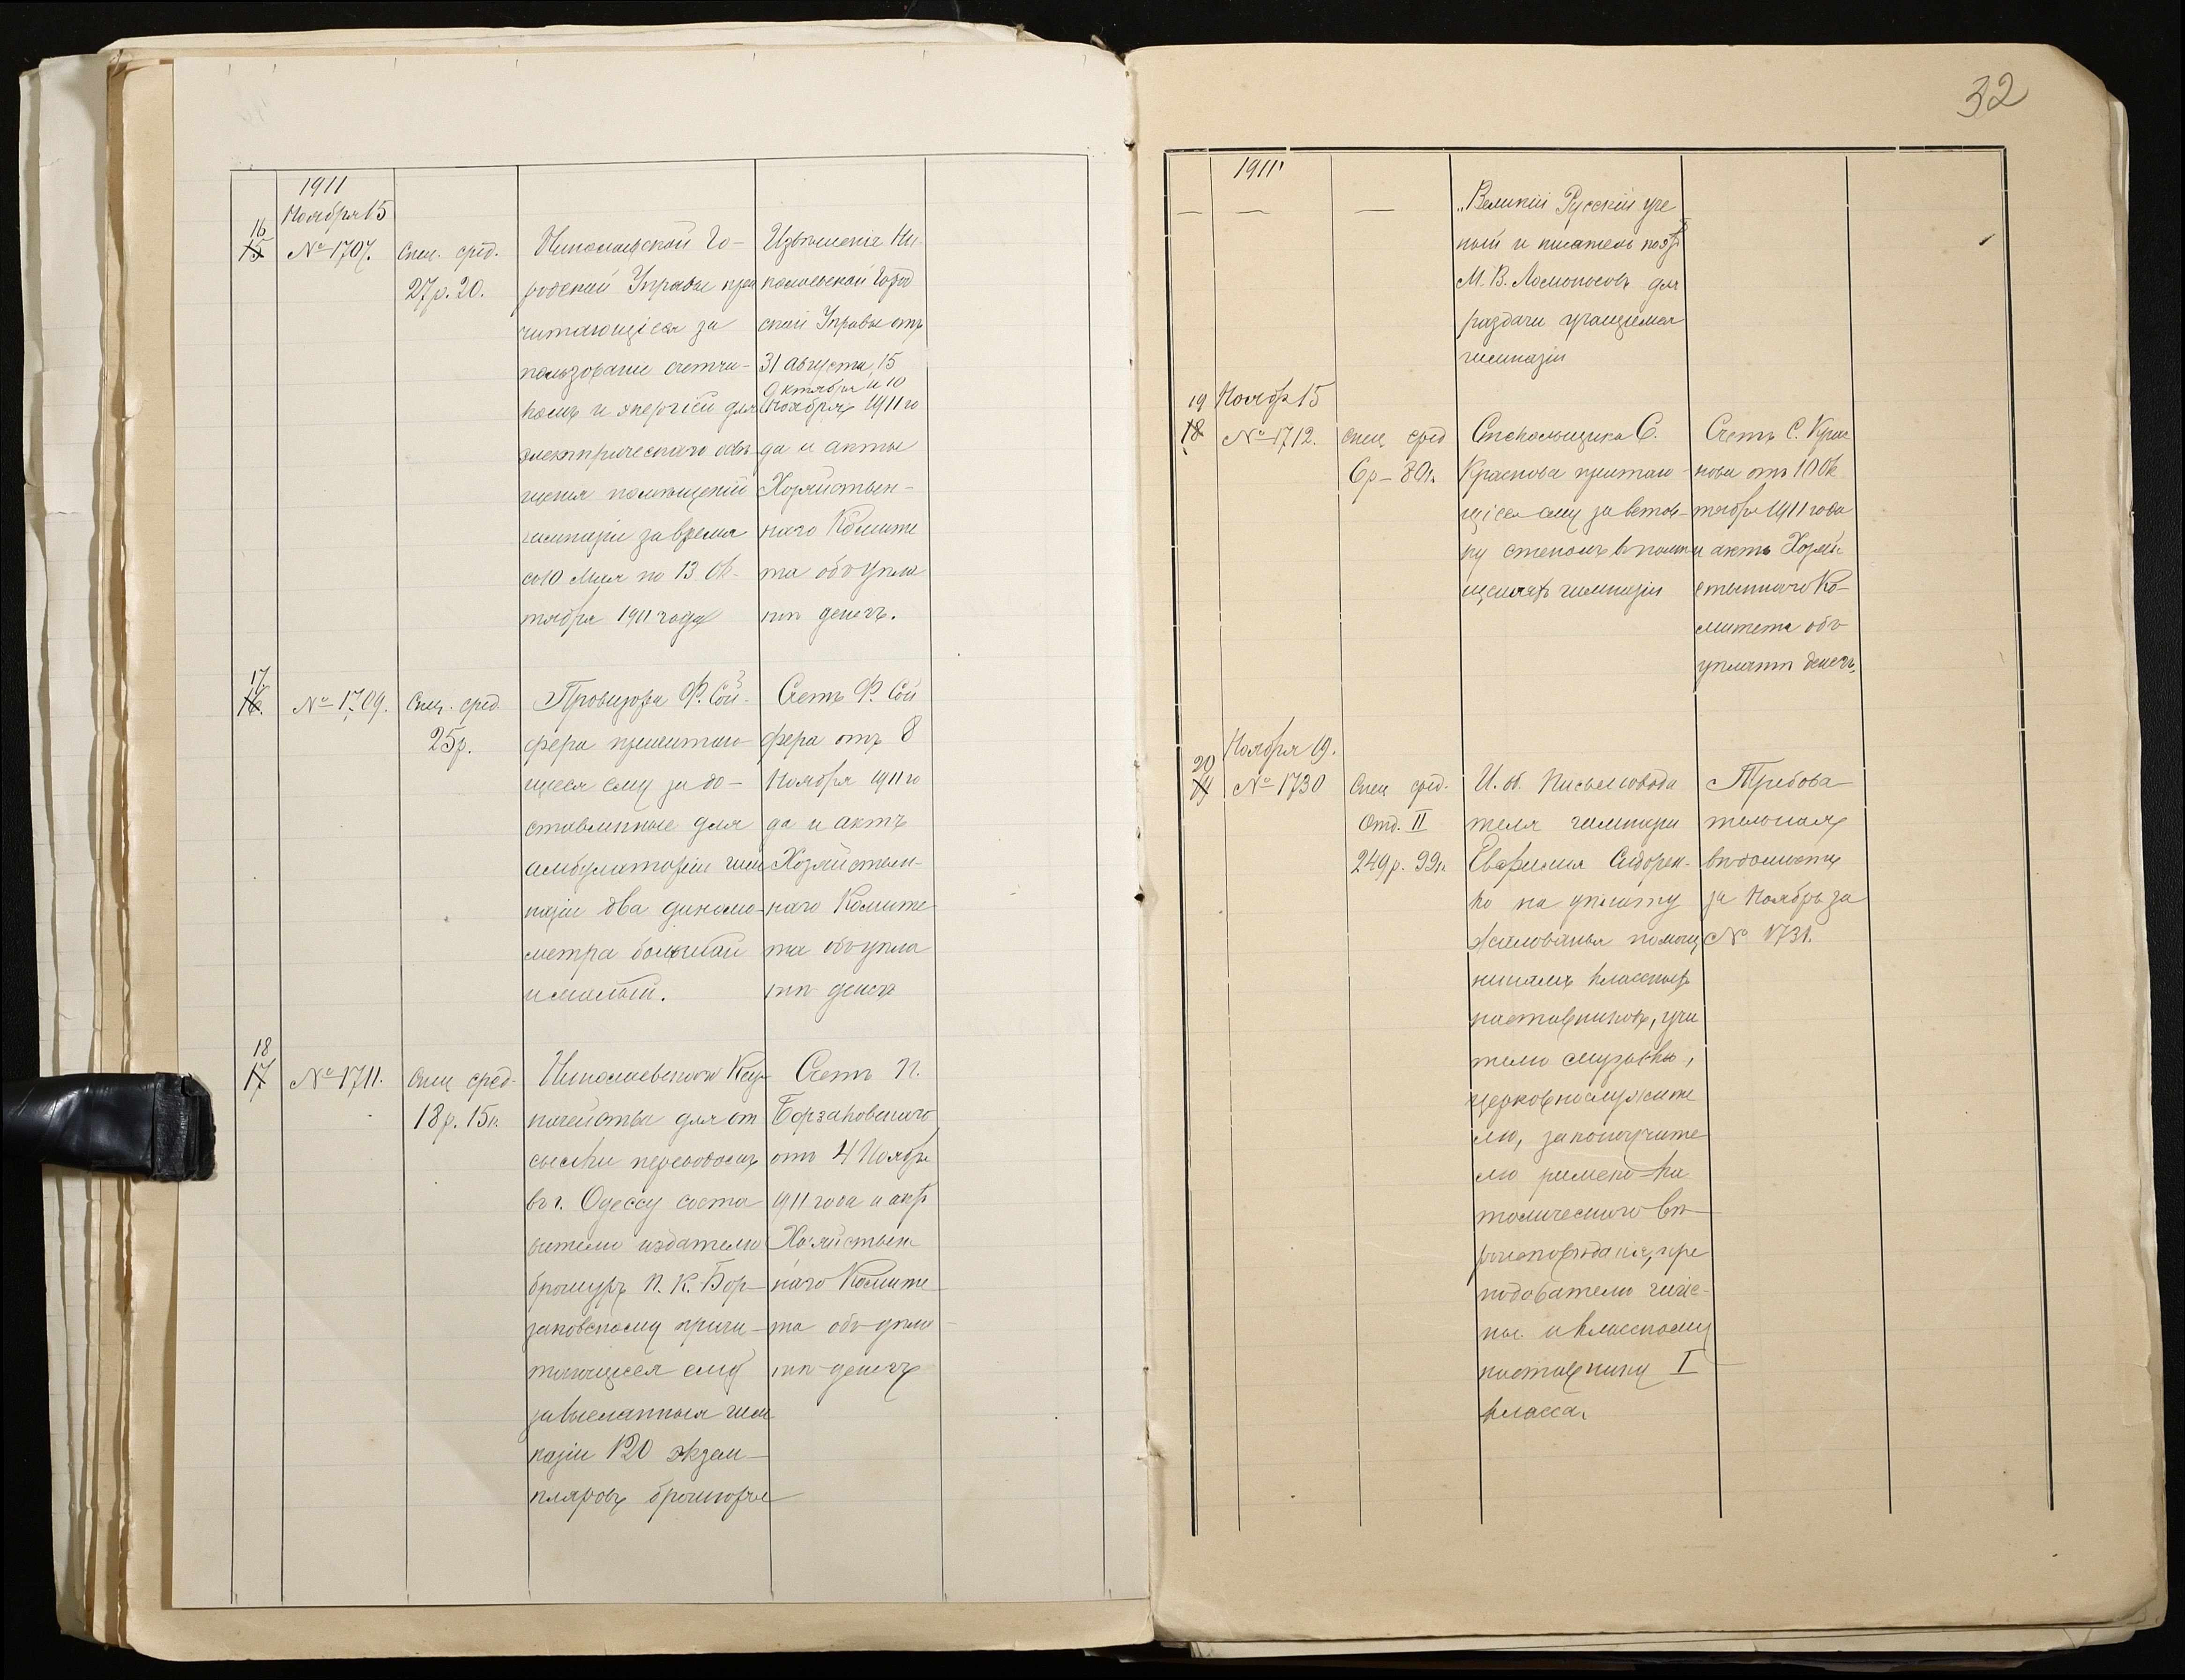 1911
Ноября 15
16
15 № 1707. Спец. сред.
27р. 20.
Николаевской Го-
родской Управы при
читающіеся за
пользованіе счетчи-
комъ и энергіей для
электрическаго освѣ-
щенія помѣщеній
гимназіи за время
съ 10 Мая по 13 Ок-
тября 1911 года
Извѣщенія Ни
колаевской Город
ской Управы отъ
31 Августа, 15
Октября и 10
Ноября 1911 го
да и акты
Хозяйствен-
наго Комите
та объ упла
тѣ денегъ.
17
16. № 1709. Спец. сред.
25р.
Провизора Ф. Зой-
фера причитаю-
щіеся ему за до-
ставленные для
амбулаторіи гим
назіи два динамо-
метра большой
и малый.
Счетъ Ф. Зой
фера отъ 8
Ноября 1911 го
да и актъ
Хозяйствен-
наго Комите-
та объ упла
тѣ денегъ
18
17 № 1711. Спец сред.
18р. 15к.
Николаевскаго Каз-
начейства для от
сылки переводомъ
въ г. Одессу соста
вителю издателю
брошуръ П. К. Бор-
заковскому причи-
тающіеся ему
за высланныя гим
назіи 120 экзем-
пляровъ брошюры
Счетъ П.
Борзаковскаго
отъ 4 Ноябр
1911 года и актъ
Хозяйствен
наго Комите
та объ упла-
тѣ денегъ
32
1911
— — —
„Великій Русскій уче
ный и писатель поэтъ
М. В. Ломоносовъ для
раздачи учащимся
гимназіи
19 Ноябр 15
18 № 1712. Спец сред
6р - 80к.
Стекольщика С.
Краснова причитаю-
щіеся ему за встав-
ку стеколъ въ помѣ
щеніяхъ гимназіи
Счетъ С. Крас
нова отъ 10 Ок
тября 1911 года
и актъ Хозяй
ственнаго Ко-
митета объ
уплатѣ денегъ.
Ноября 19.
20
19 № 1730 Спец сред.
Отд. II
249р. 99к.
И. об. Письмоводи
теля гимназіи
Евфимія Сидорен-
ко на уплату
жалованья помощ
никамъ классныхъ
наставниковъ, учи
телю музыки,
церковнослужите
лю, законоучите
лю римско-ка
толическаго вѣ-
роисповѣданія, пре
подавателю гигіе-
ны и классному
наставнику I
класса.
Требова
тельная
вѣдомость
за Ноябрь за
№ 1731.